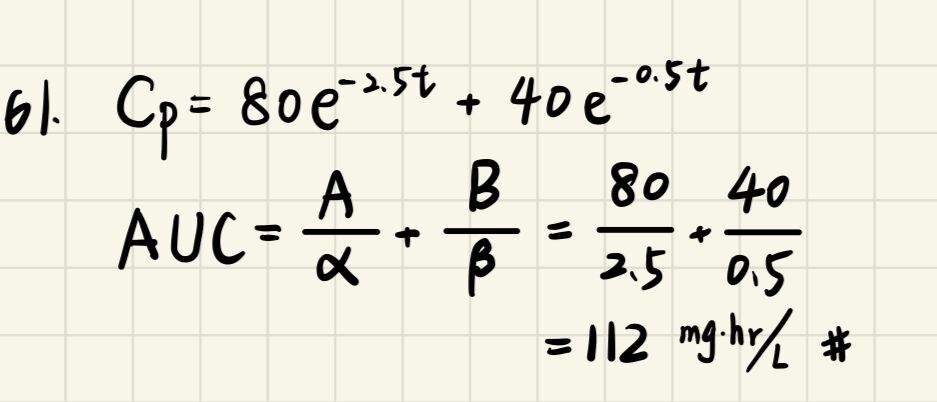 61. Cp = 80e^-2.5t + 40e^-0.5t
AUC = A/α + B/β = 80/2.5 + 40/0.5
= 112 mg·hr/L #